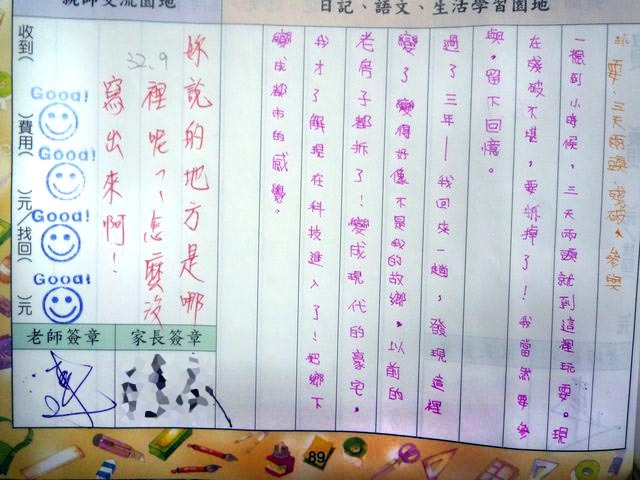 親師交流園地
日記、語文、生活學習園地
耍!三天兩頭、殘破、參與
一想到小時候,三天兩頭就到這裡玩耍。現
在殘破不堪,要拆掉了!我當然要參
與,留下回憶。
過了三年—我回來一趟,發現這裡
變了變得好像不是我的故鄉,以前的
老房子都拆了!變成現代的豪宅,
我才了解現在科技進入了!把鄉下
變成都市的感覺。
妳說的地方是哪
裡呢?怎麼沒
寫出來啊!
32.9
收到( )費用( )元/找回( )元
Good!
Good!
Good!
Good!
家長簽章
老師簽章
89